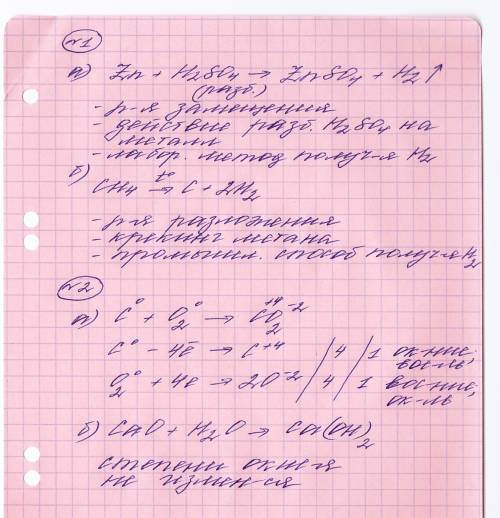 №1
а) Zn + H2SO4 → ZnSO4 + H2↑
(разб.)
- р-я замещения
- действие разб. H2SO4 на
металл
- лабор. метод получ-я H2
б)
CH4 t°→ C + 2H2
- р-я разложения
- крекинг метана
- промышл. способ получ-я H2
№2
а) C⁰ + O2⁰ → C⁺⁴O2⁻²
C⁰ - 4e → C⁺⁴ / 4 / 1 ок-ние, вос-ль
O2⁰ + 4e → 2O⁻² / 4 / 1 вос-ние, ок-ль
б) CaO + H2O → Ca(OH)2
степени окис-я
не измен-ся